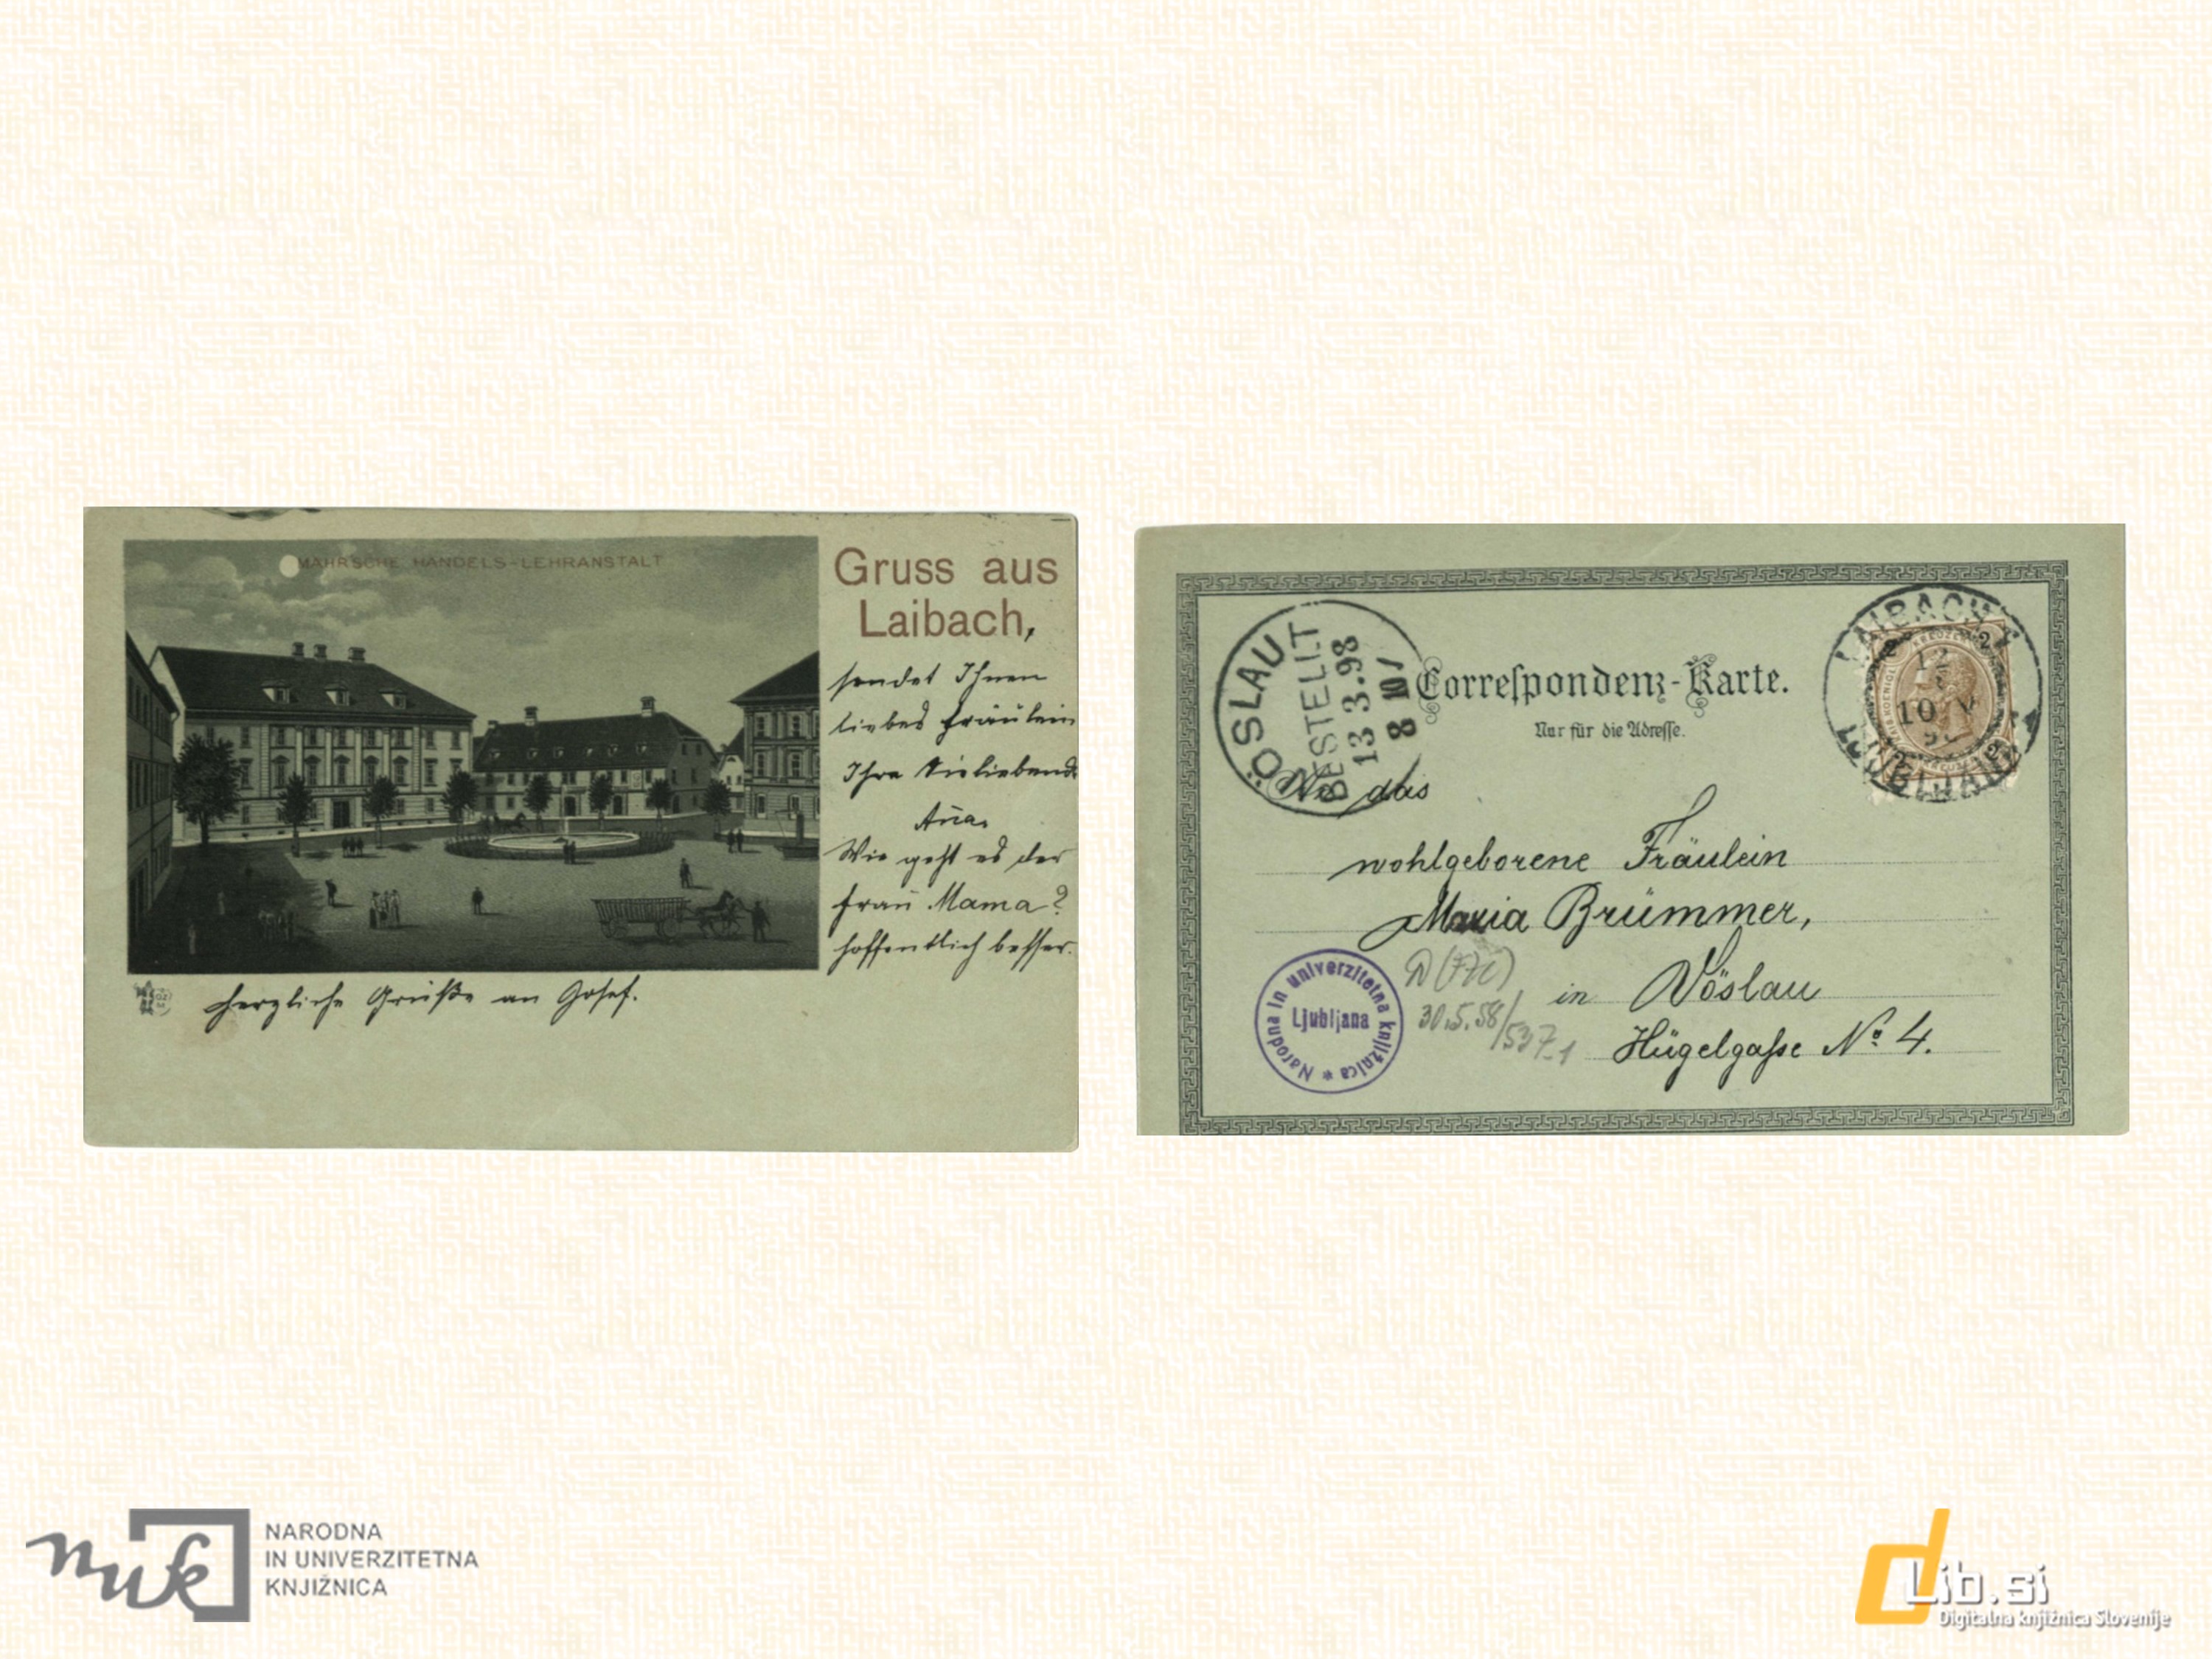 MAHR'SCHE HANDELS-LEHRANSTALT
Gruss aus
Laibach,
sendet Ihnen
liebes Fräulein
Ihre Sie liebende
Anna.
Wie geht es der
Frau Mama?
hoffentlich besser.
Herzliche Grüße an Josef.
VÖSLAU
BESTELLT
13 3.98
8 10/
Correspondenz-Karte.
Nur für die Adresse.
LAIBACH
12
10 V
LJUBLJANA
An das
wohlgeborene Fräulein
Maria Brümmer,
in Vöslau
Hügelgasse No 4.
Narodna in univerzitetna knjižnica *
Ljubljana
30.5.58/
537-1
nuk
NARODNA
IN UNIVERZITETNA
KNJIŽNICA
dLib.si
Digitalna knjižnica Slovenije